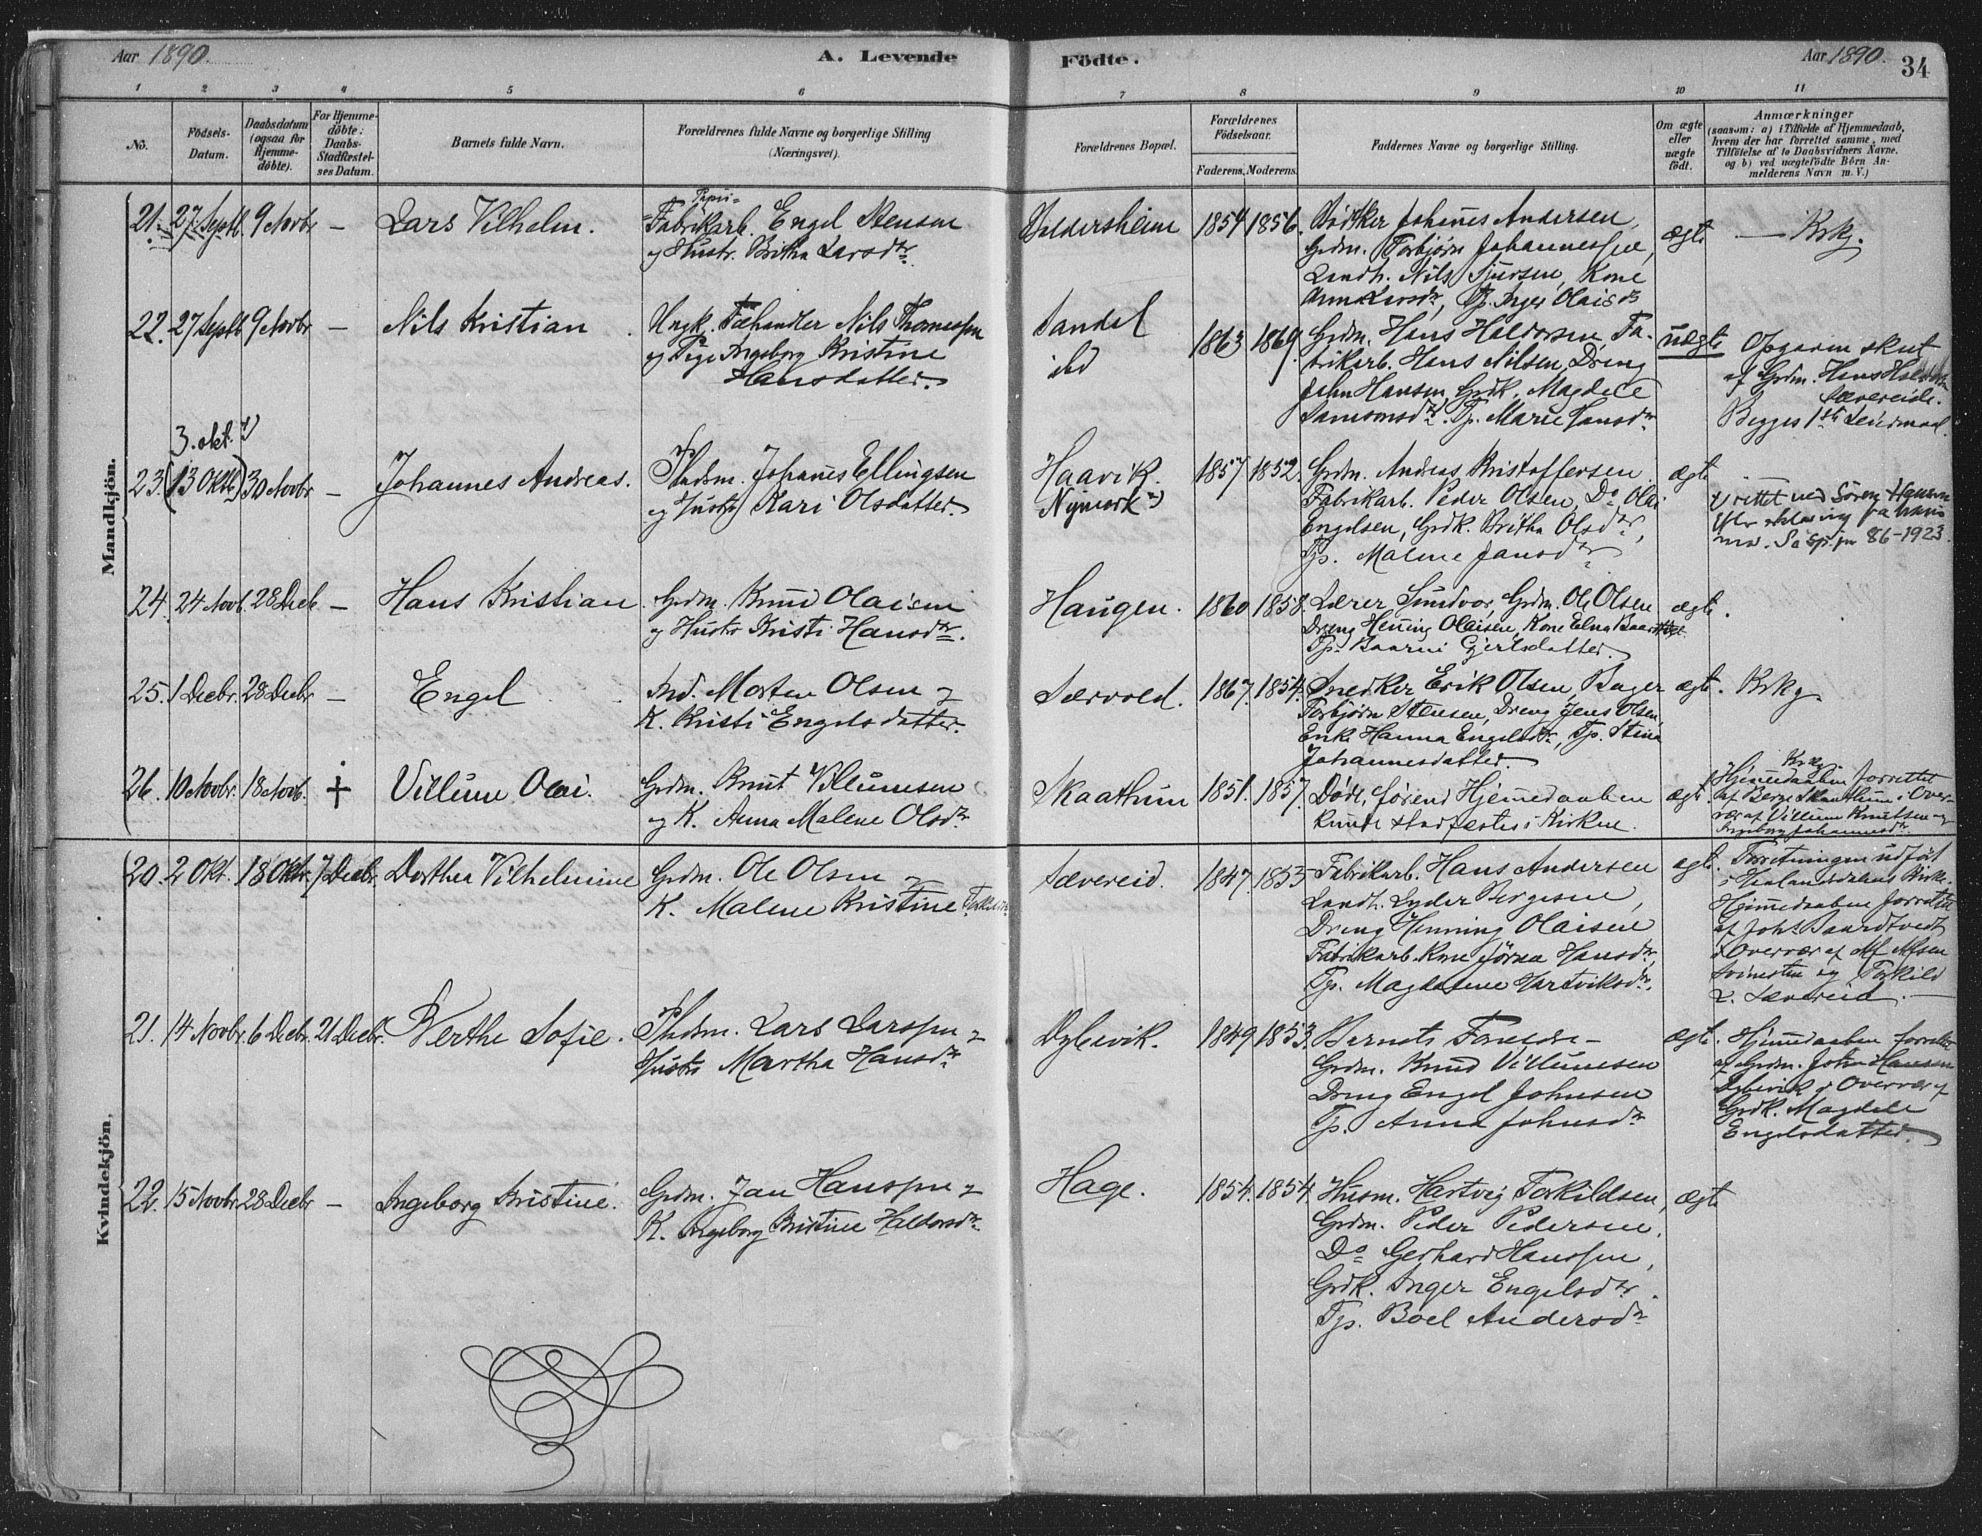 Aar 1890.
A. Levende Födte.
Aar 1890.
34
1 2 3 4 5 6 7 8 9 10 11
No.
Födsels-Datum.
Daabsdatum (ogsaa for Hjemme-döbte).
For Hjemme-döbte: Daabs-Stadfæstel-ses Datum.
Barnets fulde Navn.
Forældrenes fulde Navne og borgerlige Stilling (Næringsvei).
Forældrenes Bopæl.
Forældrenes Födselsaar.
Faderens. Moderens.
Faddernes Navne og borgerlige Stilling.
Om ægte eller uægte födt.
Anmærkninger
(saasom: a) i Tilfælde af Hjemmedaab,
hvem der har forrettet samme, med
Tilföielse af to Daabsvidners Navne.
og b) ved uægtefödte Börn An-
melderens Navn m. V.)
Mandkjön.
21. 27 Septb. 9 Novbr — Lars Vilhelm.
Fabrikarb. Engel Stensen
og Hustr. Britha Larsdtr.
1854 1856.
Johannes Andersen,
Grdm. Torbjørn Johannessen,
Landh. Nils Sjursen, Kone
Anna Larsdtr, Tp. Inger Olaisdtr
ægte — Krkg.
22. 27 Septb 9 Novbr — Nils Kristian
Ungk. Fæhandler Nils Thomessen
og Pige Ingeborg Kristine
Hansdatter.
Sandal
ibd
1863 1869.
Grdm. Hans Haldorsen, Fa-
brikarb. Hans Nilsen, Dreng
John Hansen, Grdk. Magdele
Samsonsdtr. Tp. Marie Hansdtr
uægte
Opgaven skut
af Grdm. Hans Haldorsen
Sævereide.
Begges 1ste Leiermaal.
3. okt. 1)
23. (13 Oktb.) 30 Novbr — Johannes Andreas.
Pladsm. Johanes Ellingsen
og Hustr Kari Olsdatter.
Haavik.
Nymark 1)
1857 1852.
Grdm. Andreas Kristoffersen
Fabrikarb. Peder Olsen, Do Olai
Engelsen, Grdk. Britha Olsdtr,
Tp. Malene Jansdtr
ægte
1) rettet ved Sören Hansen
86-1923.
24. 24 Novb. 28 Decb. — Hans Kristian
Grdm. Knud Olaisen
og Hustr Kristi Hansdtr.
Haugen.
1860 1858.
Lærer Sundvor, Grdm. Ole Olsen
Dreng Henning Olaisen, Kone Elna
Tp. Gjertsdatter.
ægte.
25. 1 Decbr. 28 Decbr — Engel
Ind. Morten Olsen og
K. Kristi Engelsdatter.
Særvold.
1867. 1854.
Snedker Erik Olsen, Bager
Torbjørn Stensen, Dreng Jens Olsen,
Enke Hanna Engelsdtr, Tp. Stina
Johannesdatter.
ægte. Krkg
26. 10 Novbr. 18 Novb. † Villum Olai.
Grdm. Knut Villumsen
og K. Anna Malene Olsdtr.
Skaathun
1851. 1857.
Døde, førend Hjemedaaben
kunde stadfestes i Kirken.
ægte
Krkg.
Hjemedaaben forrettet
af Berge Skaathun i Over-
vær af Villum Knutsen og
Ingeborg Johannesdtr.
Kvindekjön.
20. 2 Okt. 18 Oktr. 7 Decbr. Dorthea Vilhelmine
Grdm. Ole Olsen og
K. Malene Kristine
Sævereid.
1847. 1853
Fabrikarb. Hans Andersen
Landh. Lyder Bergesen,
Dreng Henning Olaisen
Fabrikarb. Kone Jørna Hansdtr,
Tp. Magdalene Hartviksdtr.
ægte.
Forretningen udført
i Haalandsdalens Kirke.
Hjemedaaben forrettet
af Johs Baardtvedt
i Overvær af
og Torkild
Sævereid. —
21. 14 Novbr. 6 Decbr. 21 Decbr. Berthe Sofie.
Pladsm. Lars Larssen og
Hustr Martha Hansdtr
Dybevik.
1849 1853.
Barnets Forældre —
Grdm. Knud Villumsen
Dreng Engel Johnsen
Tp. Anna Johnsdtr
ægte.
Hjemedaaben forrettet
af Grdm. John Hansen
Dybevik i Overvær af
Grdk. Magdele
Engelsdatter.
22. 15 Novbr. 28 Decbr — Ingeborg Kristine.
Grdm. Jan Hanssen og
K. Ingeborg Kristine Haldorsdtr.
Hage.
1854. 1854.
Husm. Hartvig Torkildsen,
Grdm. Peder Pedersen,
Do Gerhard Hanssen,
Grdk. Inger Engelsdtr.
Tp. Boel Andersdtr
ægte